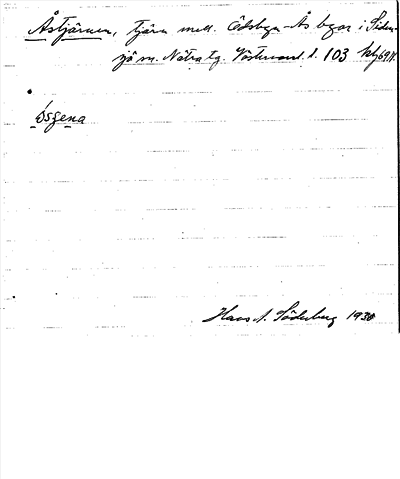 Åstjärnen, tjärn mell. Ödsbyn-Ås byar i Siden-
sjö sn. Nätra tg. Västernorrl. l. 103
ósʒena
Hans A. Söderberg 1930